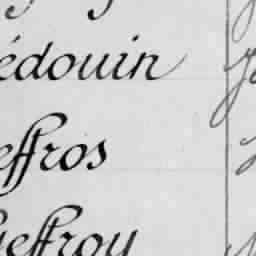 édouin
effros
Geffroy